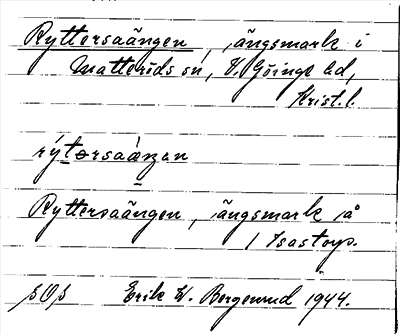 Ryttersaängen, ängsmark i
Matteröds sn, V. Göinge hd,
Krist. l.
rýtərsaàŋən
Ryttersaängen, ängsmark å
/
SOS Erik W. Bergerund 1944.